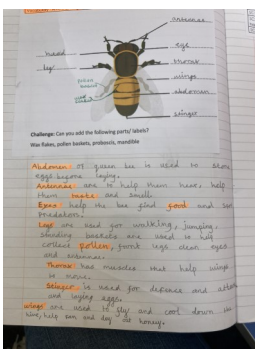 antennae
head
eye
legs
thorax
pollen basket
wings
wax
abdomen
stinger
Challenge: Can you add the following parts/ labels?
Wax flakes, pollen baskets, proboscis, mandible
Abdomen of queen bee is used to store
eggs before laying.
Antennae are to help them hear, help
them taste and smell.
Eyes help the bee find food and see
Predators.
Legs are used for walking, jumping,
standing baskets are used to help
collect pollen, front legs clean eyes
and antennae.
Thorax has muscles that help wings
to move.
Stinger is used for defence and attack
and laying eggs.
wings are used to fly and cool down the
hive, help fan and dry at honey.